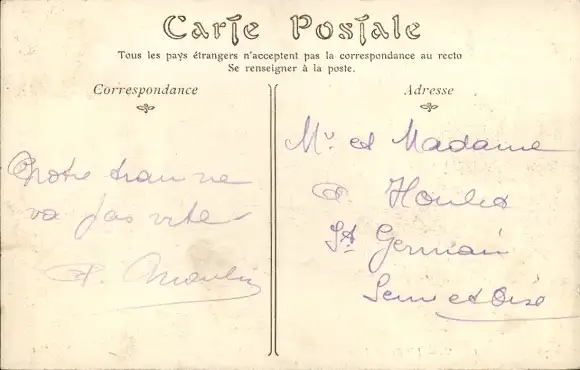 Carte Postale
Tous les pays étrangers n'acceptent pas la correspondance au recto
Se renseigner à la poste.
Correspondance
Notre tram ne
va pas vite
P. Moulin
Adresse
Mr et Madame
Houlet
St Germain
Seine et Oise